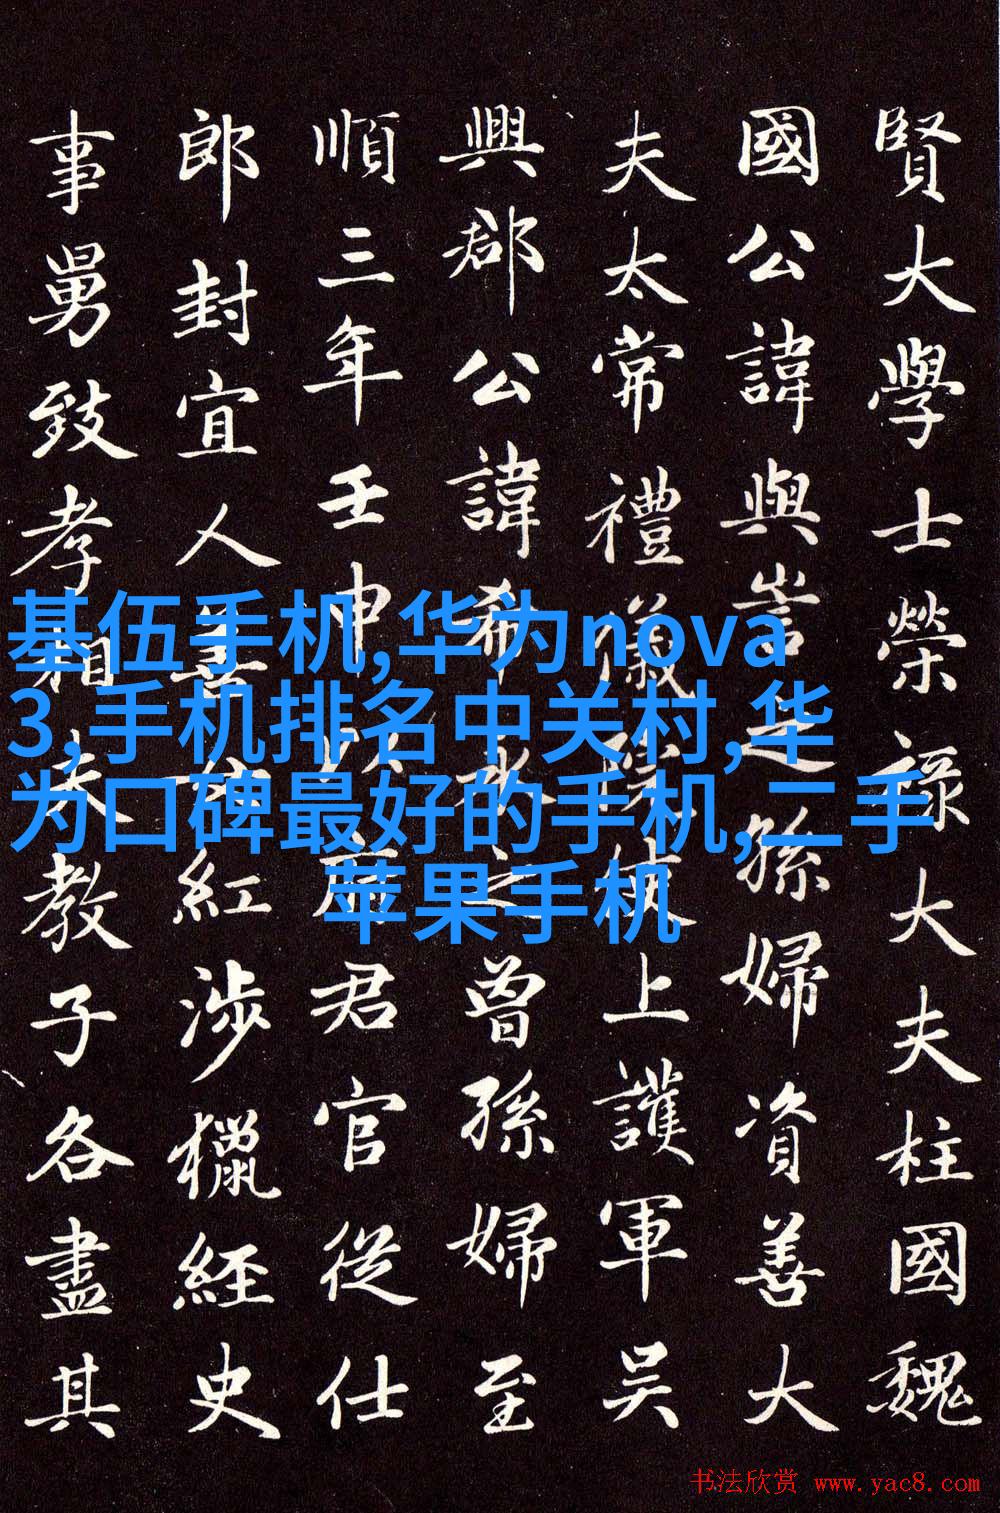 賢大學士榮祿大夫柱國魏
國公諱與訔之孫婦資善大
夫太常禮儀院使上護軍吳
興郡公諱希永之曾孫婦至
順三年壬申以府君官從仕
郎封宜人善紅涉獵經史
事舅致孝相夫教子各盡其
基伍手机,华为nova
3,手机排名中关村,华
为口碑最好的手机,二手
苹果手机
书法欣赏 www.yac8.com